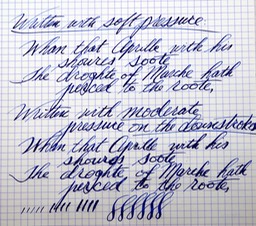 Written with soft pressure
Whan that Aprille with his
shoures soote
The droghte of Marche hath
perced to the roote,
Written with moderate
pressure on the downstrokes
Whan that Aprille with his
shoures soote
The droghte of Marche hath
perced to the roote,